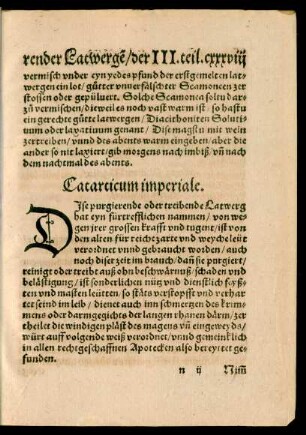 render Latwergē/der III.teil.cxxxviij
vermisch vnder eyn yedes pfund der erstgemelten lat⸗
wergen ein lot/gůtter vnuerfälschter Scamoneen zer
stossen oder gepüluert. Solche Scamonea soltu dar⸗
zů vermischen/dieweil es noch vast warm ist/so hastu
ein gerechte gůtte latwergen/Diacitboniten Soluti⸗
uum oder laxatiuum genant/Dise magstu mit wein
zertreiben/vnnd des abents warm eingeben/aber die
ander so nit laxiert/gib morgens nach imbiß/vn̄ nach
dem nachtmal des abents.
Catarticum imperiale.
DIse purgierende oder treibende Latwerg
hat eyn fürtrefflichen nammen/von we⸗
gen jrer grossen krafft vnd tugent/ist von
den alten für reiche zarte vnd weyche leüt
verordnet vnnd gebraucht worden/auch
noch diser zeit im brauch/dan̄ sie purgiert/
reinigt oder treibt auß on beschwärnuß/schaden vnd
belästigung/ist sonderlichen nütz vnd dienstlich feyß⸗
ten vnd masten leütten. so stäts verstopfft vnd verhar
tet seind im leib/dienet auch im schmertzen des krim⸗
mens oder darmgegichts der langen rhanen därm/zer
theilet die windigen pläst des magens vn̄ eingeweyds/
würt auff volgende weiß verordnet/vnnd gemeinklich
in allen rechtgeschaffnen Apotecken also bereytet ge⸗
funden.
n ij Nim̄